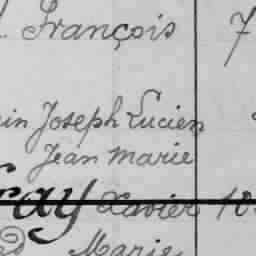 François 7
in Joseph Lucien
Jean Marie
ray Xavier 10
Marie